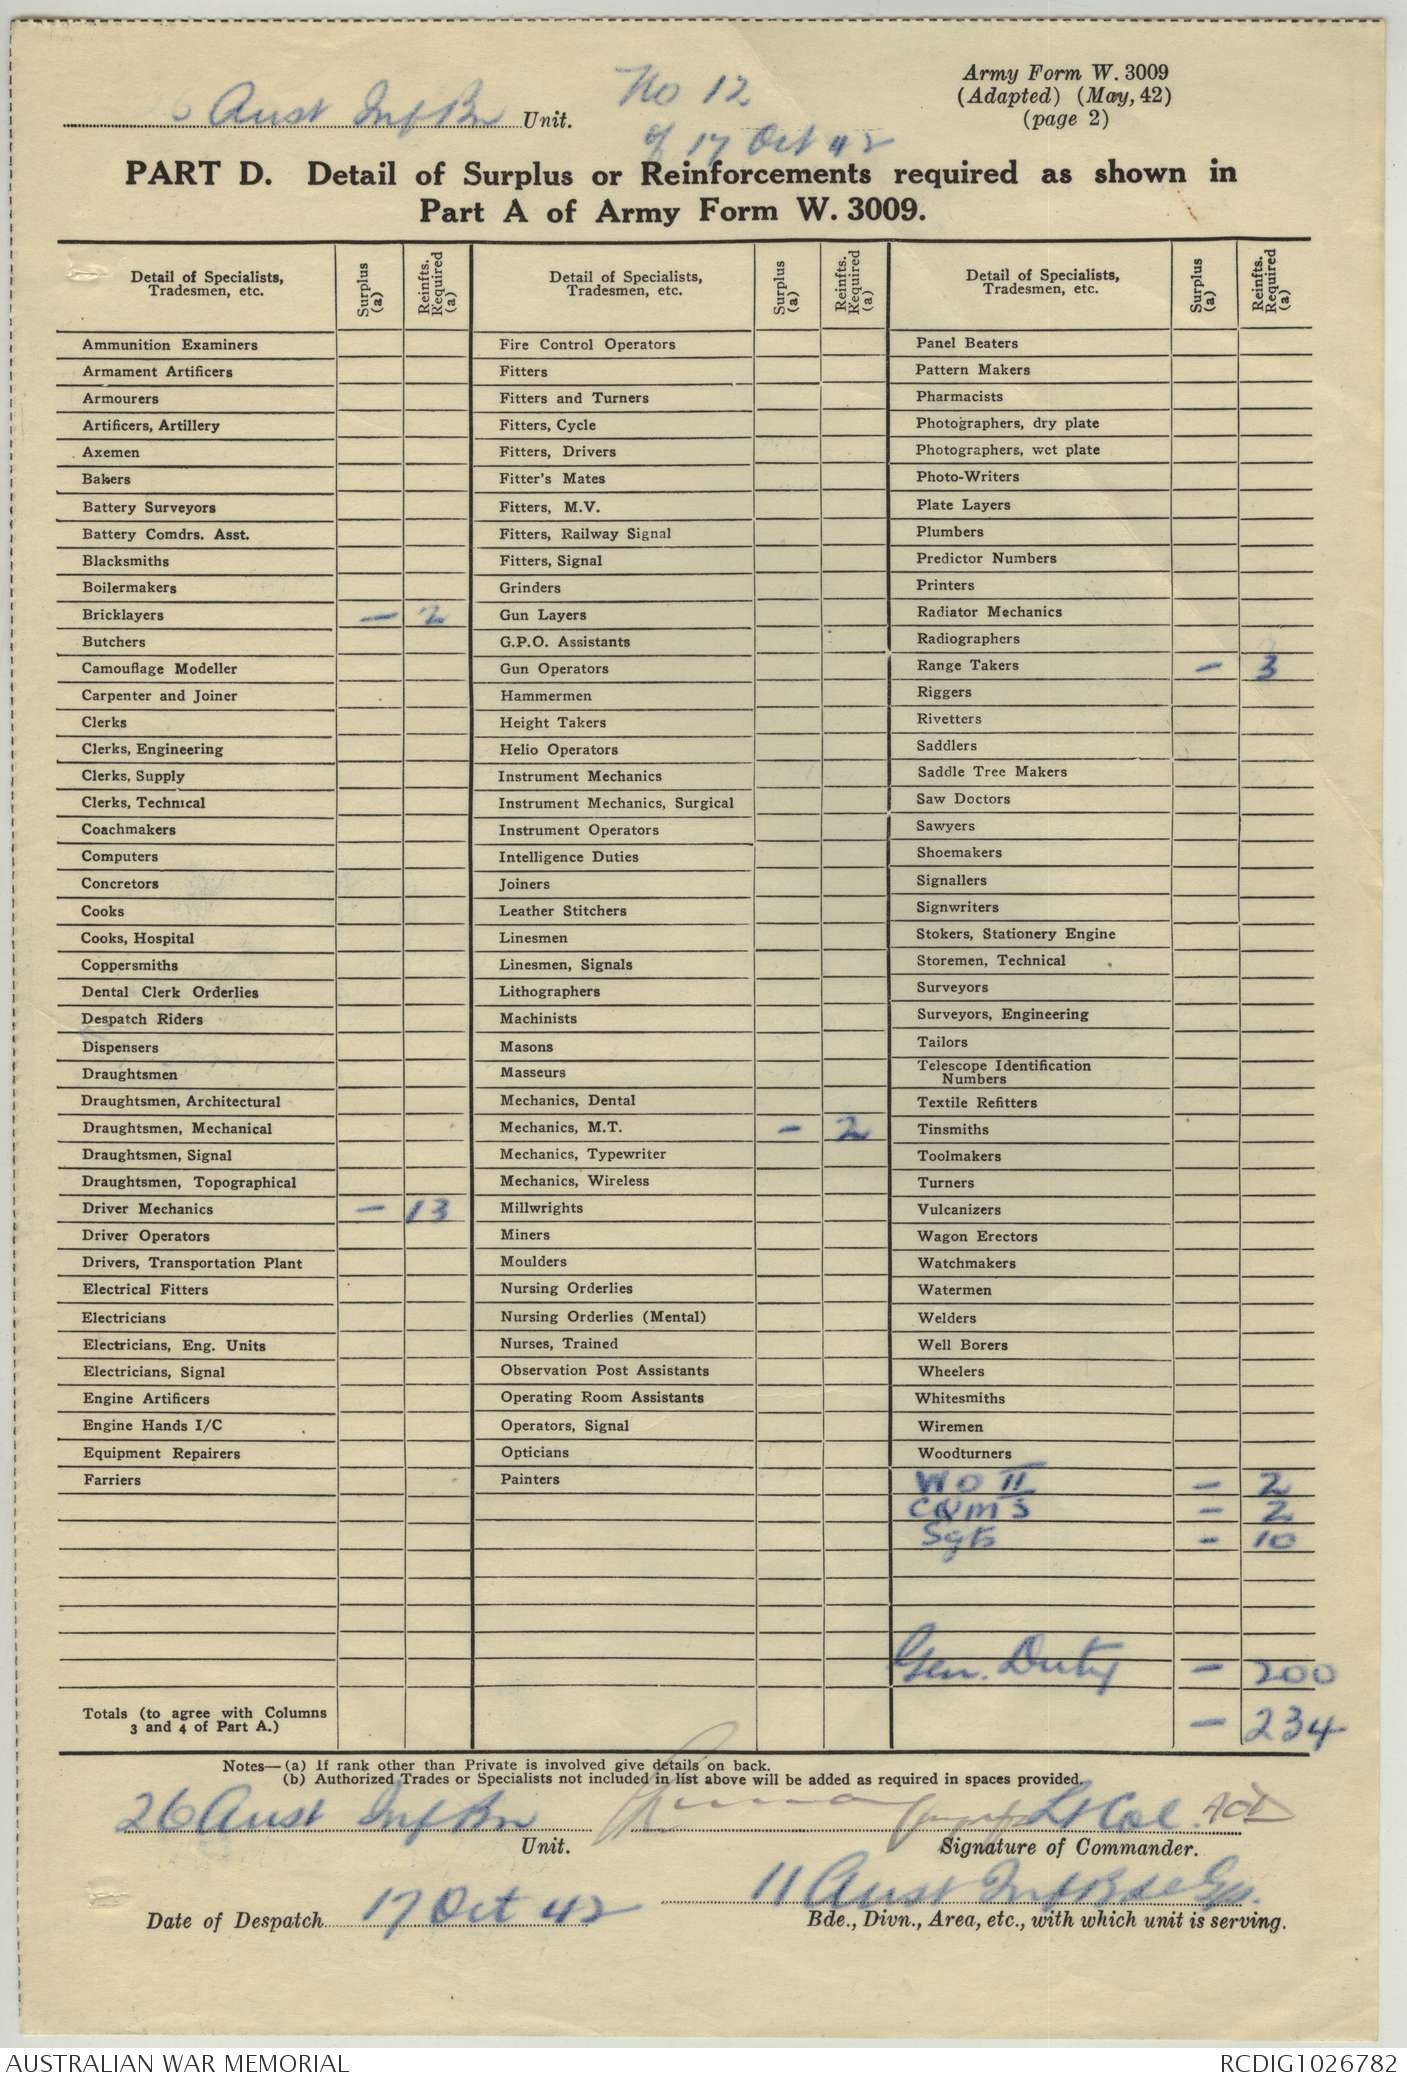 6 Aust Inf Bn Unit.
No 12
of 17 Oct 42
Army Form W. 3009
(Adapted) (May, 42)
(page 2)
PART D. Detail of Surplus or Reinforcements required as shown in
Part A of Army Form W. 3009.
Detail of Specialists, Tradesmen, etc. Surplus (a) Reinfts. Required (a) Detail of Specialists, Tradesmen, etc. Surplus (a) Reinfts. Required (a) Detail of Specialists, Tradesmen, etc. Surplus (a) Reinfts. Required (a)
Ammunition Examiners Fire Control Operators Panel Beaters
Armament Artificers Fitters Pattern Makers
Armourers Fitters and Turners Pharmacists
Artificers, Artillery Fitters, Cycle Photographers, dry plate
Axemen Fitters, Drivers Photographers, wet plate
Bakers Fitter's Mates Photo-Writers
Battery Surveyors Fitters, M.V. Plate Layers
Battery Comdrs. Asst. Fitters, Railway Signal Plumbers
Blacksmiths Fitters, Signal Predictor Numbers
Boilermakers Grinders Printers
Bricklayers — 2 Gun Layers Radiator Mechanics
Butchers G.P.O. Assistants Radiographers
Camouflage Modeller Gun Operators Range Takers — 3
Carpenter and Joiner Hammermen Riggers
Clerks Height Takers Rivetters
Clerks, Engineering Helio Operators Saddlers
Clerks, Supply Instrument Mechanics Saddle Tree Makers
Clerks, Technical Instrument Mechanics, Surgical Saw Doctors
Coachmakers Instrument Operators Sawyers
Computers Intelligence Duties Shoemakers
Concretors Joiners Signallers
Cooks Leather Stitchers Signwriters
Cooks, Hospital Linesmen Stokers, Stationery Engine
Coppersmiths Linesmen, Signals Storemen, Technical
Dental Clerk Orderlies Lithographers Surveyors
Despatch Riders Machinists Surveyors, Engineering
Dispensers Masons Tailors
Draughtsmen Masseurs Telescope Identification Numbers
Draughtsmen, Architectural Mechanics, Dental Textile Refitters
Draughtsmen, Mechanical Mechanics, M.T. — 2 Tinsmiths
Draughtsmen, Signal Mechanics, Typewriter Toolmakers
Draughtsmen, Topographical Mechanics, Wireless Turners
Driver Mechanics — 13 Millwrights Vulcanizers
Driver Operators Miners Wagon Erectors
Drivers, Transportation Plant Moulders Watchmakers
Electrical Fitters Nursing Orderlies Watermen
Electricians Nursing Orderlies (Mental) Welders
Electricians, Eng. Units Nurses, Trained Well Borers
Electricians, Signal Observation Post Assistants Wheelers
Engine Artificers Operating Room Assistants Whitesmiths
Engine Hands I/C Operators, Signal Wiremen
Equipment Repairers Opticians Woodturners
Farriers Painters WO II — 2
CQMS — 2
Sgts — 10
Gen. Duty — 200
Totals (to agree with Columns
3 and 4 of Part A.) — 234
Notes—(a) If rank other than Private is involved give details on back.
(b) Authorized Trades or Specialists not included in list above will be added as required in spaces provided.
26 Aust Inf Bn Lt Col.
Unit. Signature of Commander.
Date of Despatch 17 Oct 42 11 Aust Inf Bde Gp.
Bde., Divn., Area, etc., with which unit is serving.
AUSTRALIAN WAR MEMORIAL RCDIG1026782